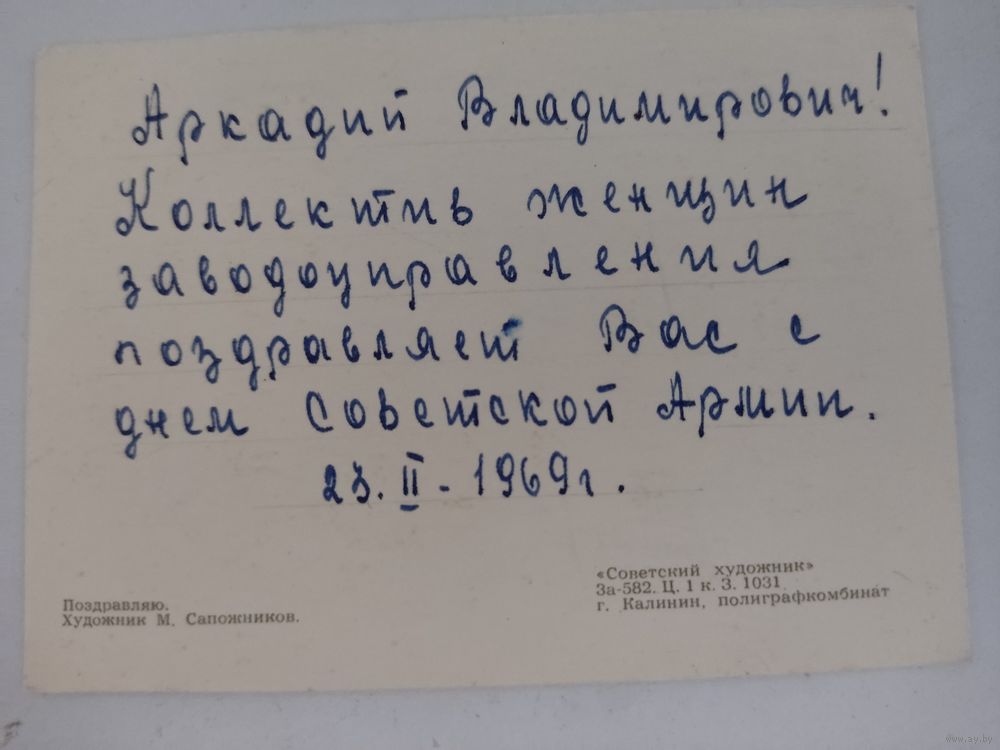 Аркадий Владимирович!
Коллектив женщин
заводоуправления
поздравляет Вас с
днем Советской Армии.
23.II-1969г.
Поздравляю.
Художник М. Сапожников.
«Советский художник»
За-582. Ц. 1 к. З. 1031
г. Калинин, полиграфкомбинат
www.ay.by